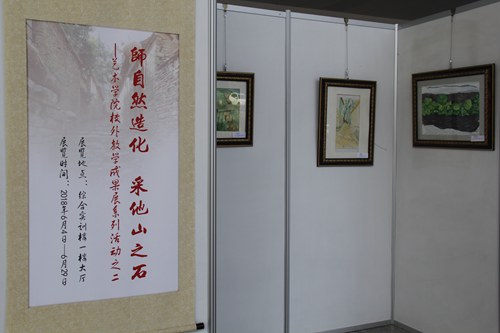 師自然造化 采他山之石
—艺术学院校外教学成果展系列活动之二
展览地点：综合实训楼一楼大厅
展览时间：2018年6月4日—6月29日